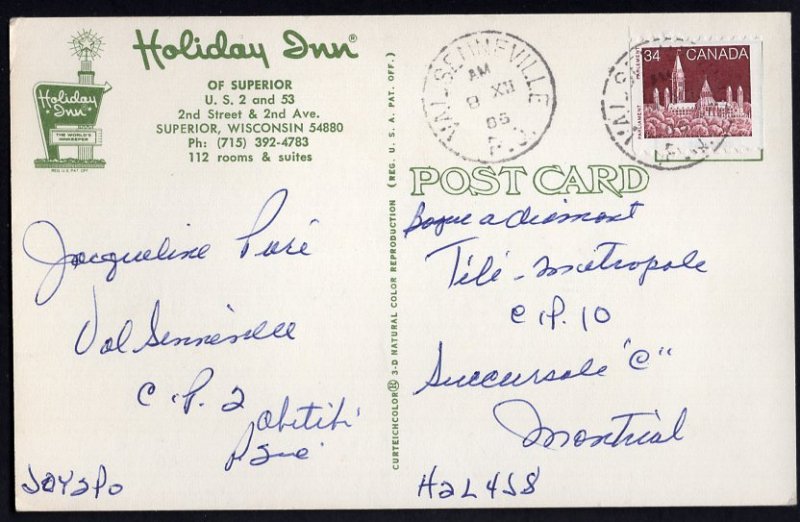 Holiday Inn®
OF SUPERIOR
U. S. 2 and 53
2nd Street & 2nd Ave.
SUPERIOR, WISCONSIN 54880
Ph: (715) 392-4783
112 rooms & suites
Holiday Inn
THE WORLD'S INNKEEPER
REG. U.S. PAT. OFF.
Jacqueline Paré
Val Senneville
C.P. 2
Abitibi
J0Y2P0
CURTEICHCOLOR® 3-D NATURAL COLOR REPRODUCTION (REG. U. S. A. PAT. OFF.)
VAL SENNEVILLE
AM
9 XII
P.Q.
34 CANADA
PARLEMENT
PARLIAMENT
POST CARD
Bague a diamant
Télé-Métropole
C.P. 10
Succursale "C"
Montréal
H2L4J8